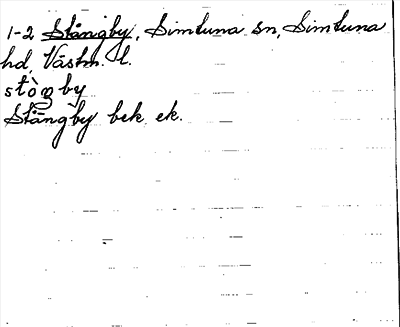 1-2 Stångby, Simtuna sn, Simtuna
hd, Västm. l.
stòŋby
Stångby bek. ek.